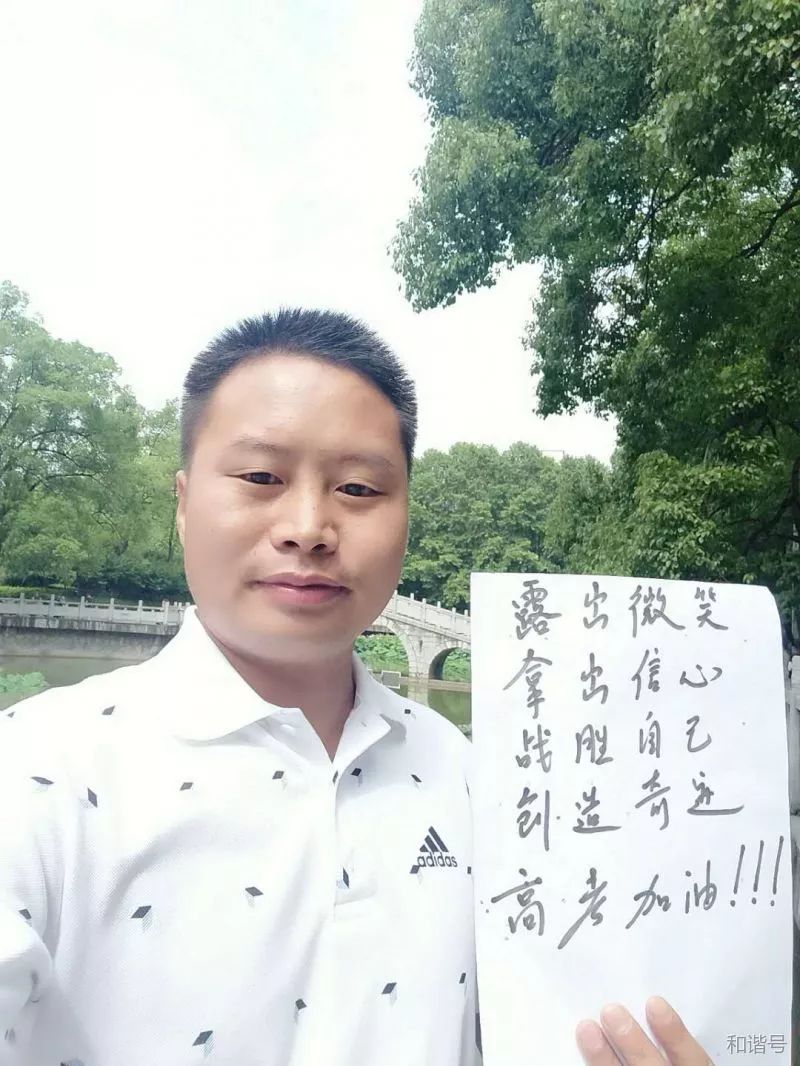 露出微笑
拿出信心
战胜自己
创造奇迹
高考加油!!!
adidas
和谐号